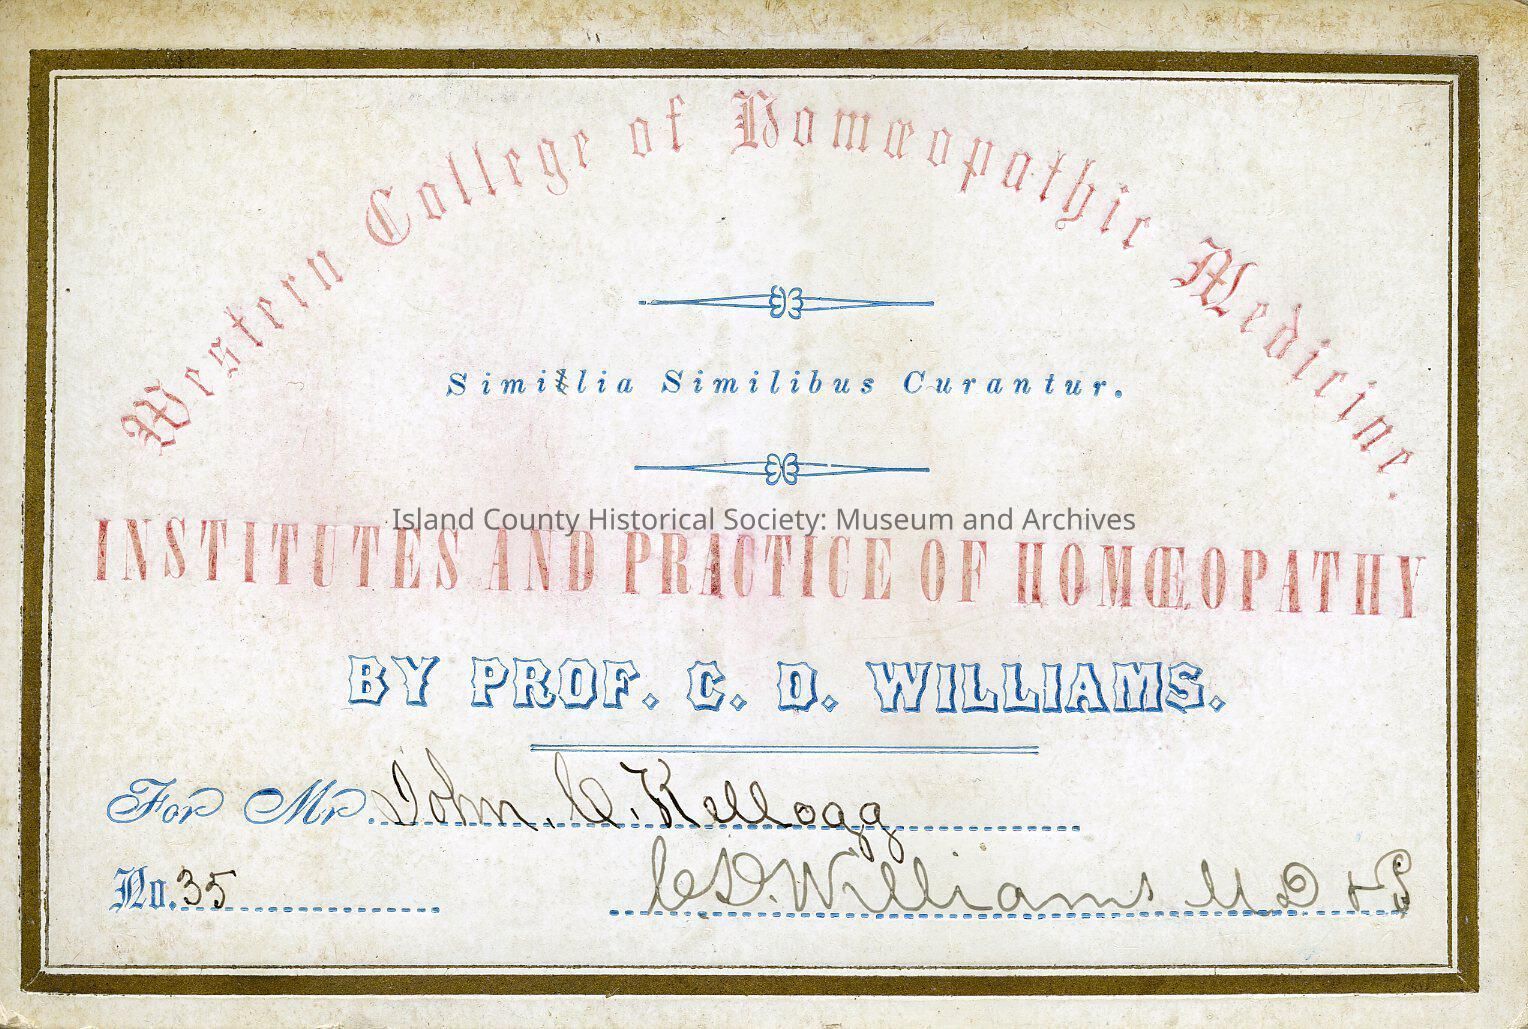 Western College of Homœopathic Medicine.
Similia Similibus Curantur.
Island County Historical Society: Museum and Archives
INSTITUTES AND PRACTICE OF HOMŒOPATHY
BY PROF. C. D. WILLIAMS.
For Mr. John. C. Kellogg
No. 35
C D. Williams M D